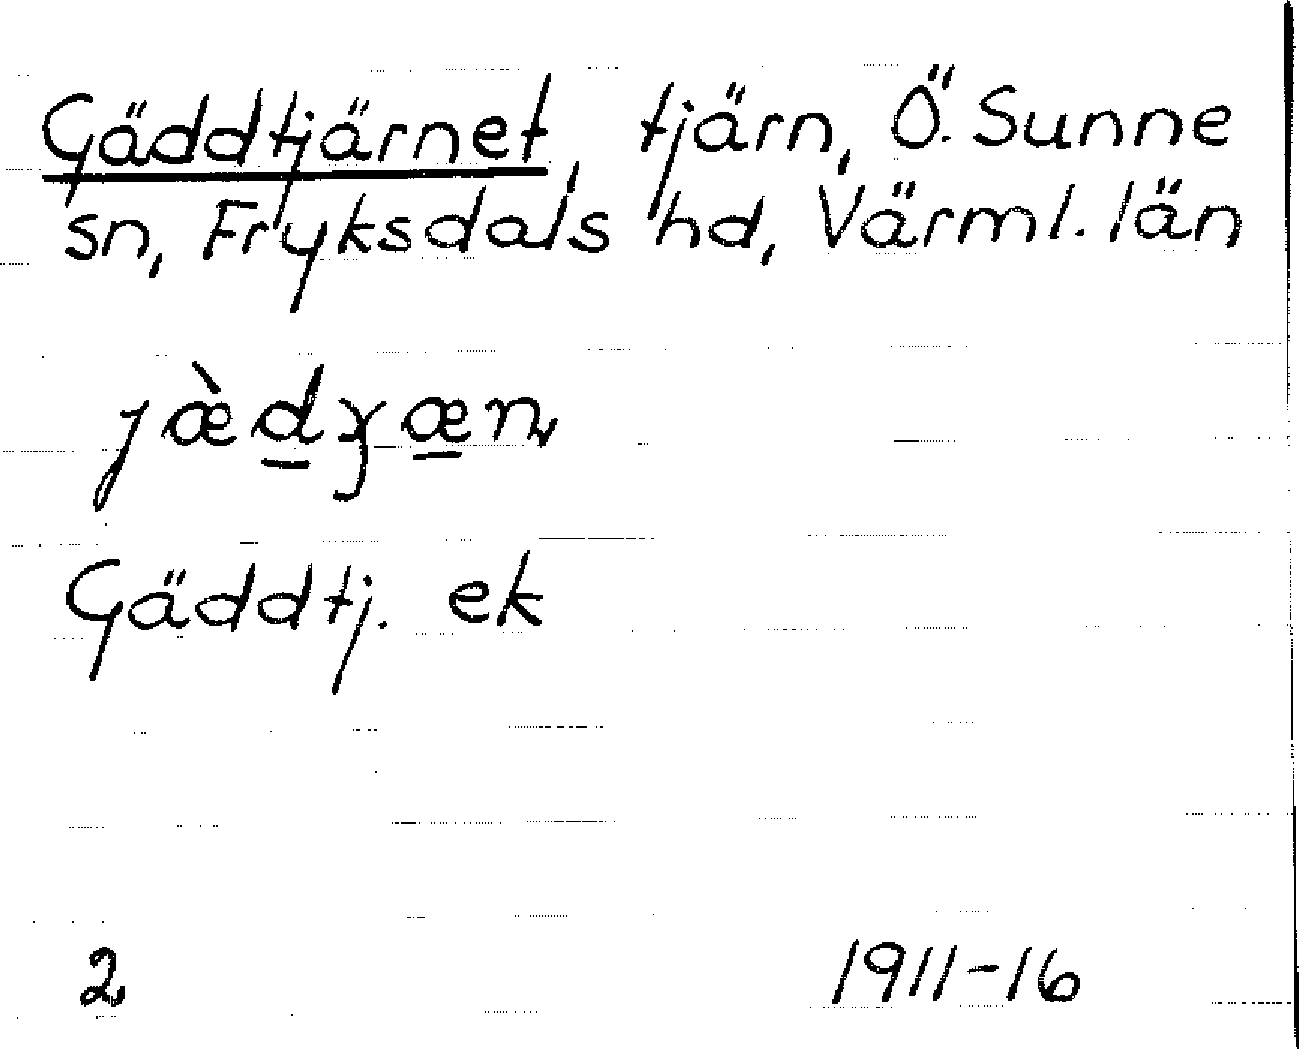 Gäddtjärnet, tjärn, Ö. Sunne
sn, Fryksdals hd, Värml. län
Gäddtj. ek
2 1911-16